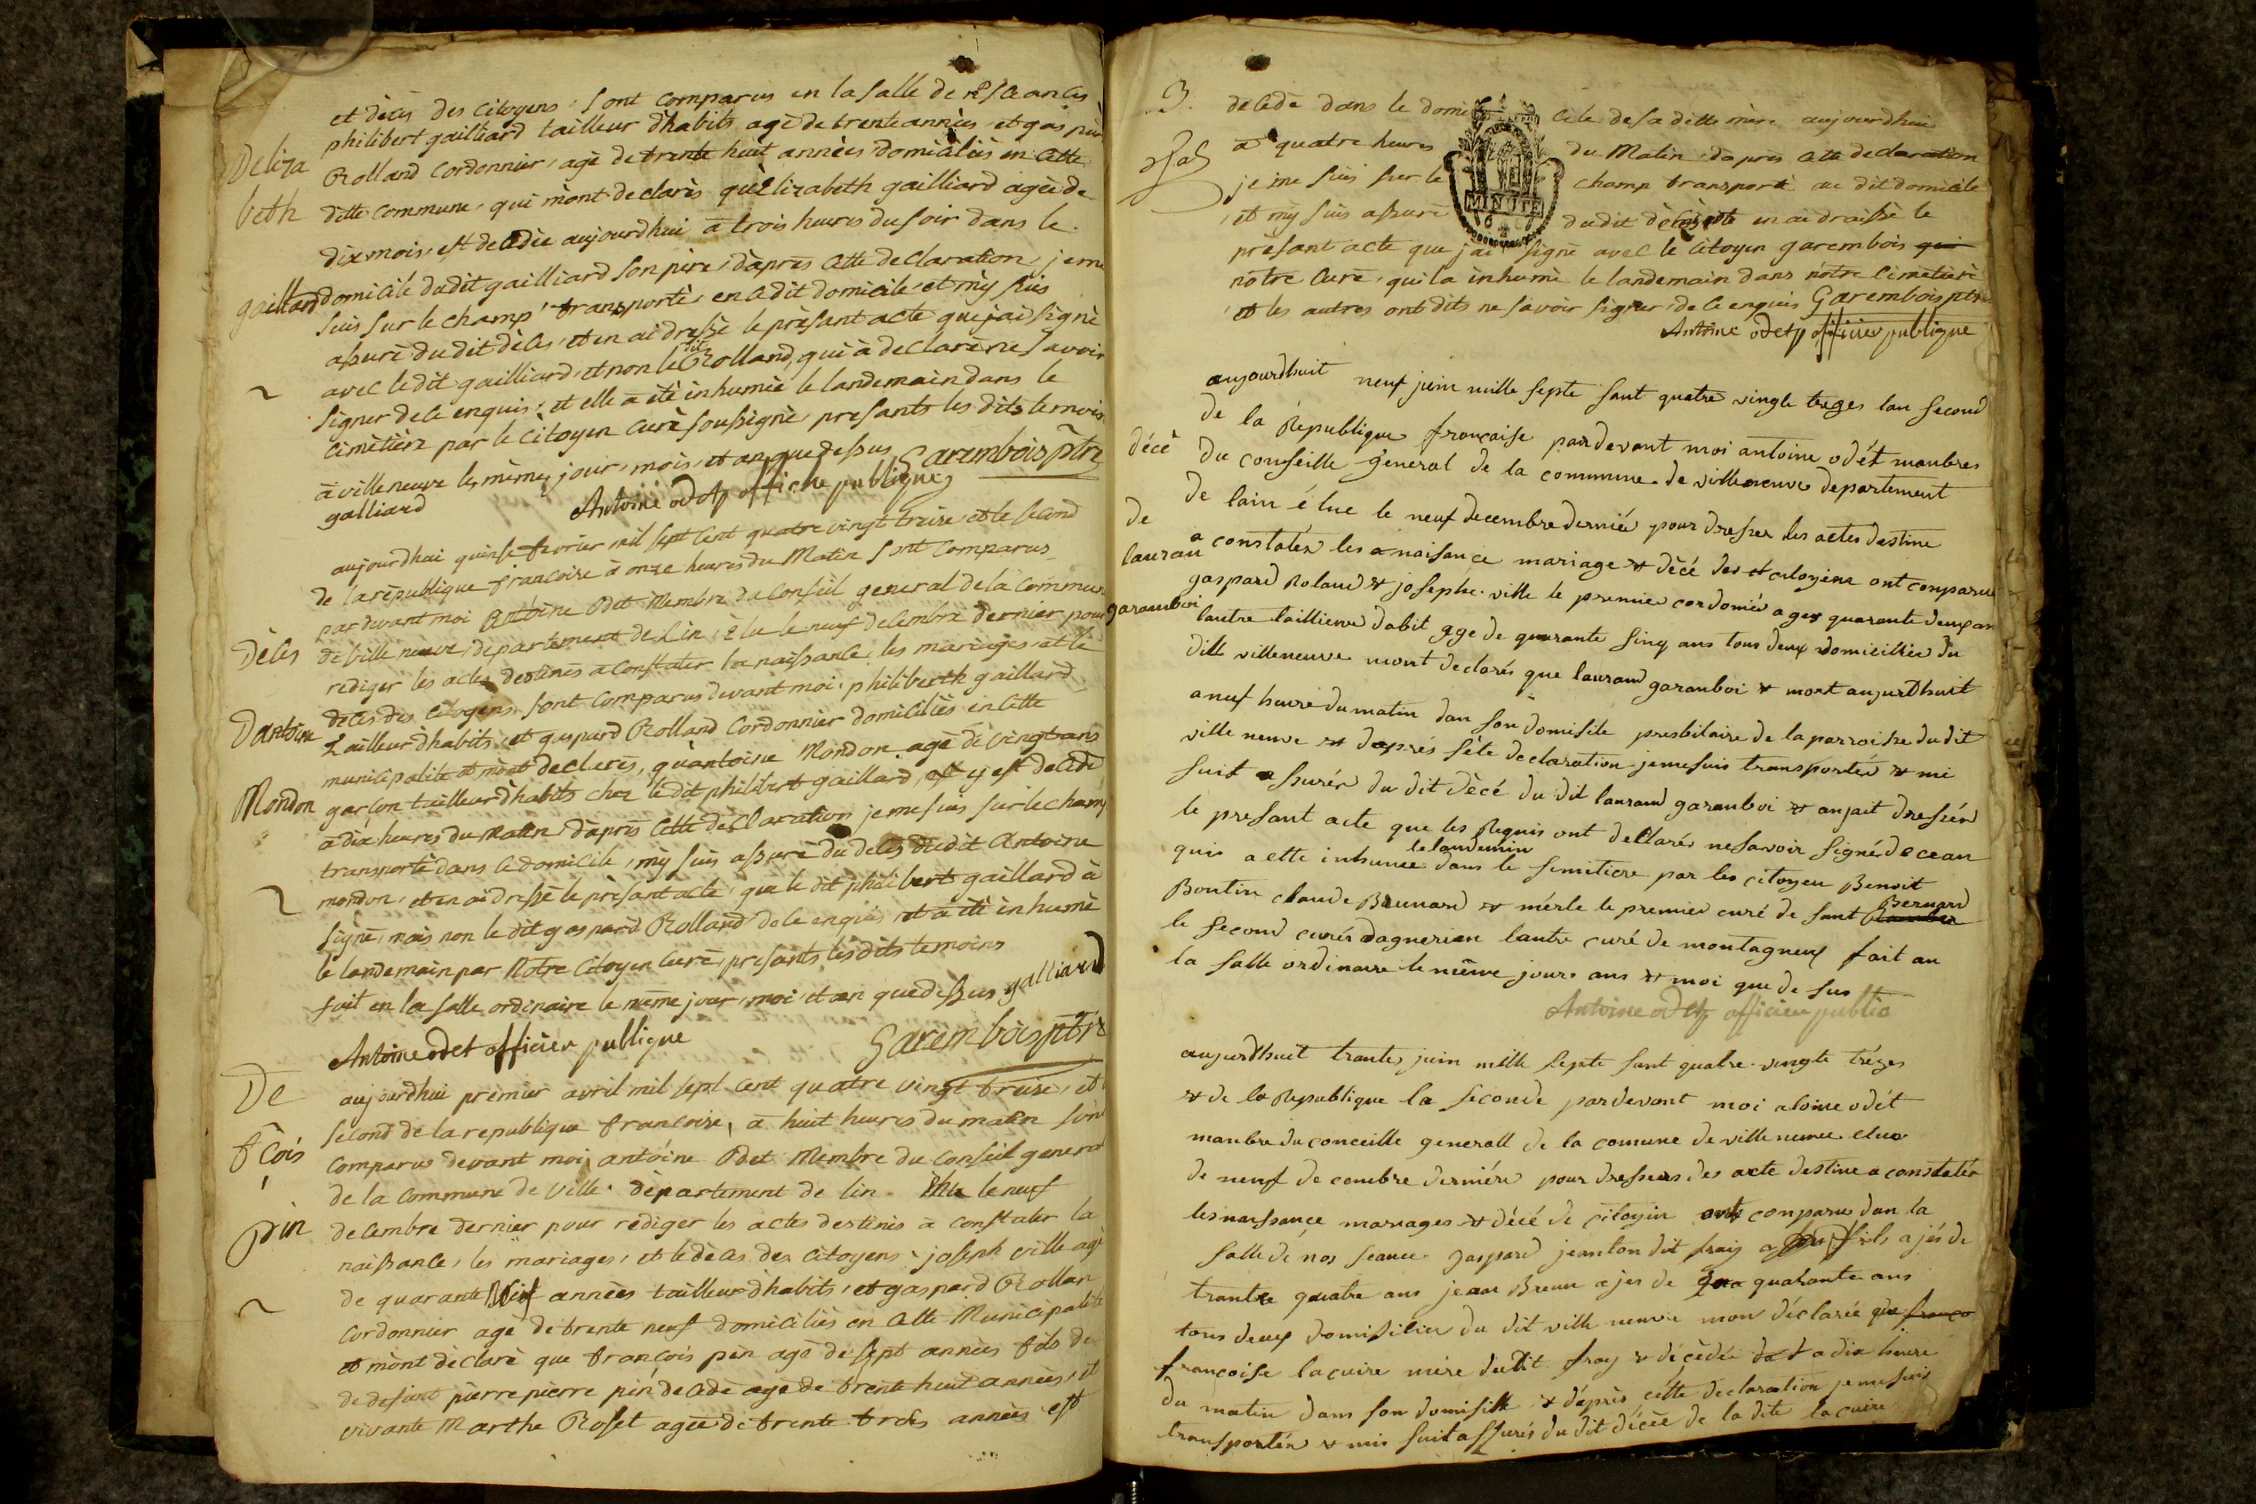 et dècès des citoyens, sont comparus en la salle de nos sceances
philibert gailliard tailleur d'habits agè de trente annèes, et gaspar
Deliza
Rolland Cordonnier, agè de trente huit annèes domiciliès en cette
beth
ditte commune, qui m'ont declarès qu'Elizabeth gailliard agèe de
dix mois, est decedèe aujourdhui à trois heures du soir dans le
gaillard
domicilè dudit gailliard son père, d'après cette declaration, je me
suis sur le champ transportè, en ce dit domicile, et m'y suis
assurè du dit dècès, et en ai dressè le prèsant acte que j'ai signè
avec le dit gailliard, et non le dit Rolland, qui à declarè ne savoir
signer de ce enquis, et elle a étè inhumèe le landemain dans le
cimètière par le citoyen curè soussignè, presants les dits temoins
à villeneuve les mêmes jour, mois, et an que dessus Garembois ptre
galliard Antoine odet officie publique
aujourdhui quinse fevrier mil sept cent quatre vingt treise, et le second
de la rèpublique francoise à onze heures du Matin sont comparus
par devant moi Antoine Odet Membre du Conseil general de la Commune
Dècès
de Ville neuve, departement de L'in, èlu le neuf decembre dernier pour
rediger les actes destinès a constater la naissance, les mariages, et le
dècès des citoyens, sont comparus devant moi, philiberth gaillard
Dantoine
Tailleur d'habits, et gaspard Rolland Cordonnier domiciliès en cette
municipalitè et m'ont declerès, qu'antoine Mondon agè de vingt ans
Mondon
garçon tailleur d'habits chez le dit philibert gaillard, est y est decedè
a dix heures du Matin d'après cette dèclaration je me suis sur le champ
transportè dans ce domicile, m'y suis assurè du decès du dit Antoine
mondon, et en ai dressè le prèsant acte, que le dit philibert gaillard à
signè, mais non le dit gaspard Rolland de ce enquis, et a étè inhumè
le landemain par Notre Citoyen curè, presants les dits temoins
fait en la salle ordinaire le même jour, moi, et an que dessus galliard
Antoine odet officier publique Garembois ptre
De
aujourdhui premier avril mil sept cent quatre vingt treise, et
second de la republique francoise, à huit heures du matin sont
fçois
comparus devant moi antoine Odet Membre du Conseil general
de la Commune de Ville. département de lin. èlu le neuf
pin
decembre dernier pour rèdiger les actes destinès à constater la
naissance, les mariages, et le dècès des citoyens, joseph ville agè
de quarante annèes tailleur d'habits, et gaspard Rollan
Cordonnier agè de trente neuf domiciliès en cette Municipalitè
et m'ont dèclarè que françois pin agè de sept annèes fils de
de defunt pierre pierre pin decedè agè de trente huit annèes, et
vivante Marthe Roset agèe de trente trois annèes est
3.
decedè dans le domicile de sa ditte mère aujourdhui
à quatre heures du Matin, d'après cette declaration
je me suis sur le champ transportè au dit domicile
MINUTE
et m'y suis assurè du dit dècès, et en ai draissè le
prèsant acte que j'ai signè avec le citoyen garembois qui
nôtre curè, qui l'a inhumè le landemain dans nôtre cimetière
et les autres ont dits ne savoir signer, de ce enquis Garembois ptre
Antoine odet officier publique
aujourdhuit neuf juin mille septe sant quatre vingle tréges lan second
de la République françaisse pardevant moi antoine odét manbres
décè
du conseille general de la commune de villeneuve departement
de lain élue le neuf decembre derniér pour dresser les actes destine
de
lauran
a constatér les naisance mariage & décé des citoyens ont conparue
gaspard Roland & josephe ville le premier cordonier ager quarante deux an
garamboi
lautre taillieure dabit age de quarante sinq ans tous deux domicilliée du
dill villeneuve mont declarés que laurand garanboi & mort aujurdhuit
a neuf heure du matin dan son domisile presbitaire de la parroisse du dit
villeneuve & daprés séte declaration je me suis transportér & mi
suit assurér du dit dècé du dit laurand garanboi & anjait dressér
le presant acte que les Requis ont decllarér nesavoir signé de cean
quis a ette inhumee le landemin dans le simitiere par les citoyen Benoit
Boutin claude Brunard & mérle le premier curé de sant Bernard
le second curér dagnerien lautre curé de montagneux fait an
la salle ordinaire le même jours ans & moi que de sus
Antoine odet officier public
aujurdhuit trante juin mille septe sant quatre vingte tréges
& de la République la seconde pardevant moi atoine odét
manbre du conceille generall de la comune de villeneuve elue
de neuf de cembre derniére pour dressers des acte destine a constatér
les naissançe mariages & décé de citoyin ont conparus dan la
salle de nos seance gaspard jeanton dit fray fils ajés de
trantre quatre ans jean Brun ajer de quarante ans
tous deux domisilier du dit villeneuve mon déclarée que
françoise lacuire mére dudit fray & décédée a dix heure
du matin dans son domisille & d'après cétte declaration je me suis
transportér & mis suit assurés du dit décée de la dite lacuire